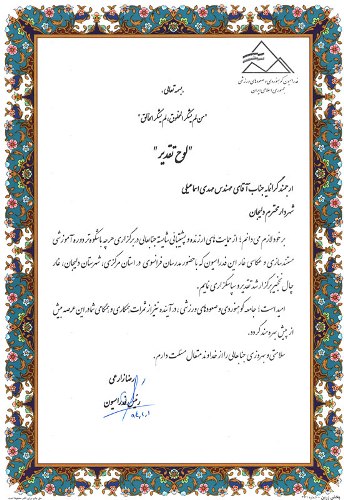 فدراسیون کوهنوردی و صعودهای ورزشی
جمهوری اسلامی ایران
بسمه تعالی
"من لم یشکر المخلوق، لم یشکر الخالق"
"لوح تقدیر"
ارجمند گرانمایه جناب آقای مهندس مهدی اسماعیلی
شهردار محترم دلیجان
بر خود لازم می دانم؛ از حمایت های ارزنده و پشتیبانی شایسته جنابعالی در برگزاری هر چه باشکوه تر دوره آموزشی
مستندسازی و عکاسی غار این فدراسیون که با حضور مدرسان فرانسوی در استان مرکزی، شهرستان دلیجان، غار
چال نخجیر برگزار شد تقدیر و سپاسگزاری نمایم.
امید است؛ جامعه کوهنوردی و صعودهای ورزشی، در آینده نیز از ثمرات همکاری و همگامی شما در این عرصه بیش
از پیش بهره مند گردد.
سلامتی و بهروزی جنابعالی را از خداوند متعال مسئلت دارم.
رضا زارعی
رئیس فدراسیون